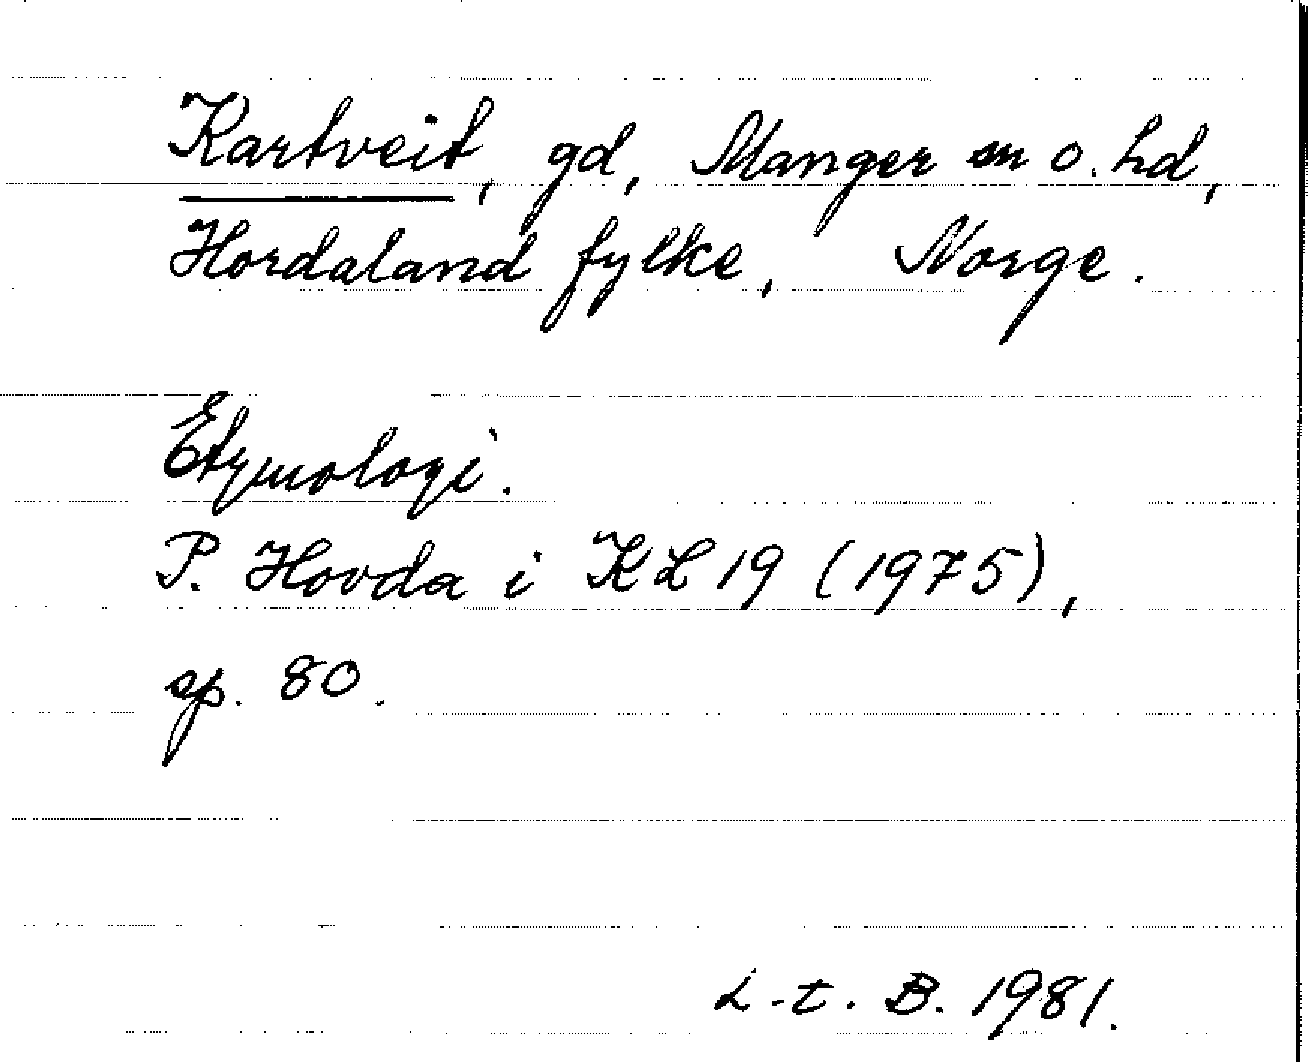 Kartveit, gd, Manger sn o. hd,
Hordaland fylke, Norge.
Etymologi.
P. Hovda i KL 19 (1975),
sp. 80.
L-t. B. 1981.